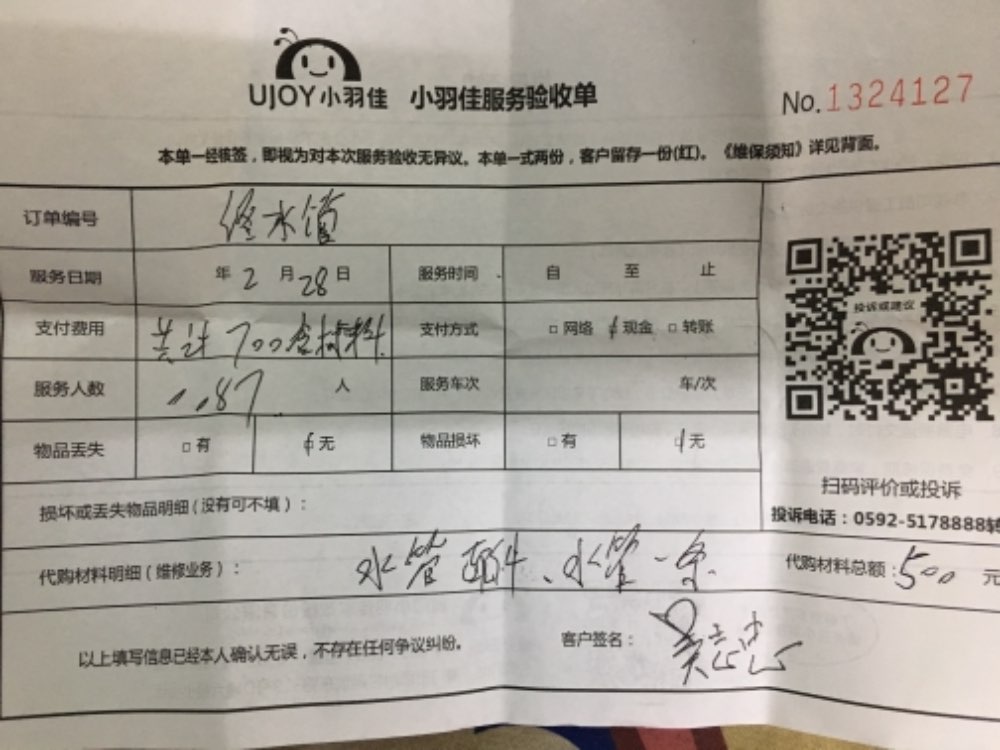 UJOY小羽佳 小羽佳服务验收单
No.1324127
本单一经核签，即视为对本次服务验收无异议。本单一式两份，客户留存一份(红)。《维保须知》详见背面。
订单编号 修水管
服务日期 年2月28日 服务时间 自 至 止
支付费用 共计700含材料 支付方式 □网络 现金 □转账
服务人数 人 服务车次 车/次
物品丢失 □有 无 物品损坏 □有 无
损坏或丢失物品明细(没有可不填)：
代购材料明细(维修业务)： 水管配件、水管一条 代购材料总额：500元
以上填写信息已经本人确认无误，不存在任何争议纠纷。 客户签名：
投诉或建议
扫码评价或投诉
投诉电话：0592-5178888转